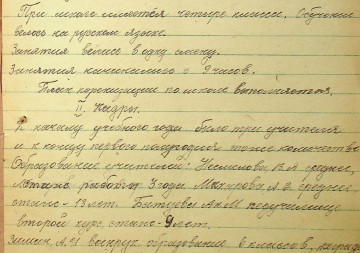 При школе имеется четыре класса. Обучение
велось на русском языке.
Занятия велись в одну смену.
Занятия начинались с 9 часов.
План коренизации по школе выполняется.
II. Кадры.
К началу учебного года было три учителя
и к концу первого полугодия тоже количество
Образование учителей: В.А средн,
стаж работы 3 года. А.Э среднее
стаж - 13 лет. Ан.М педучилище
второй курс, стаж - 9 лет.
А.И образование 6 классов,